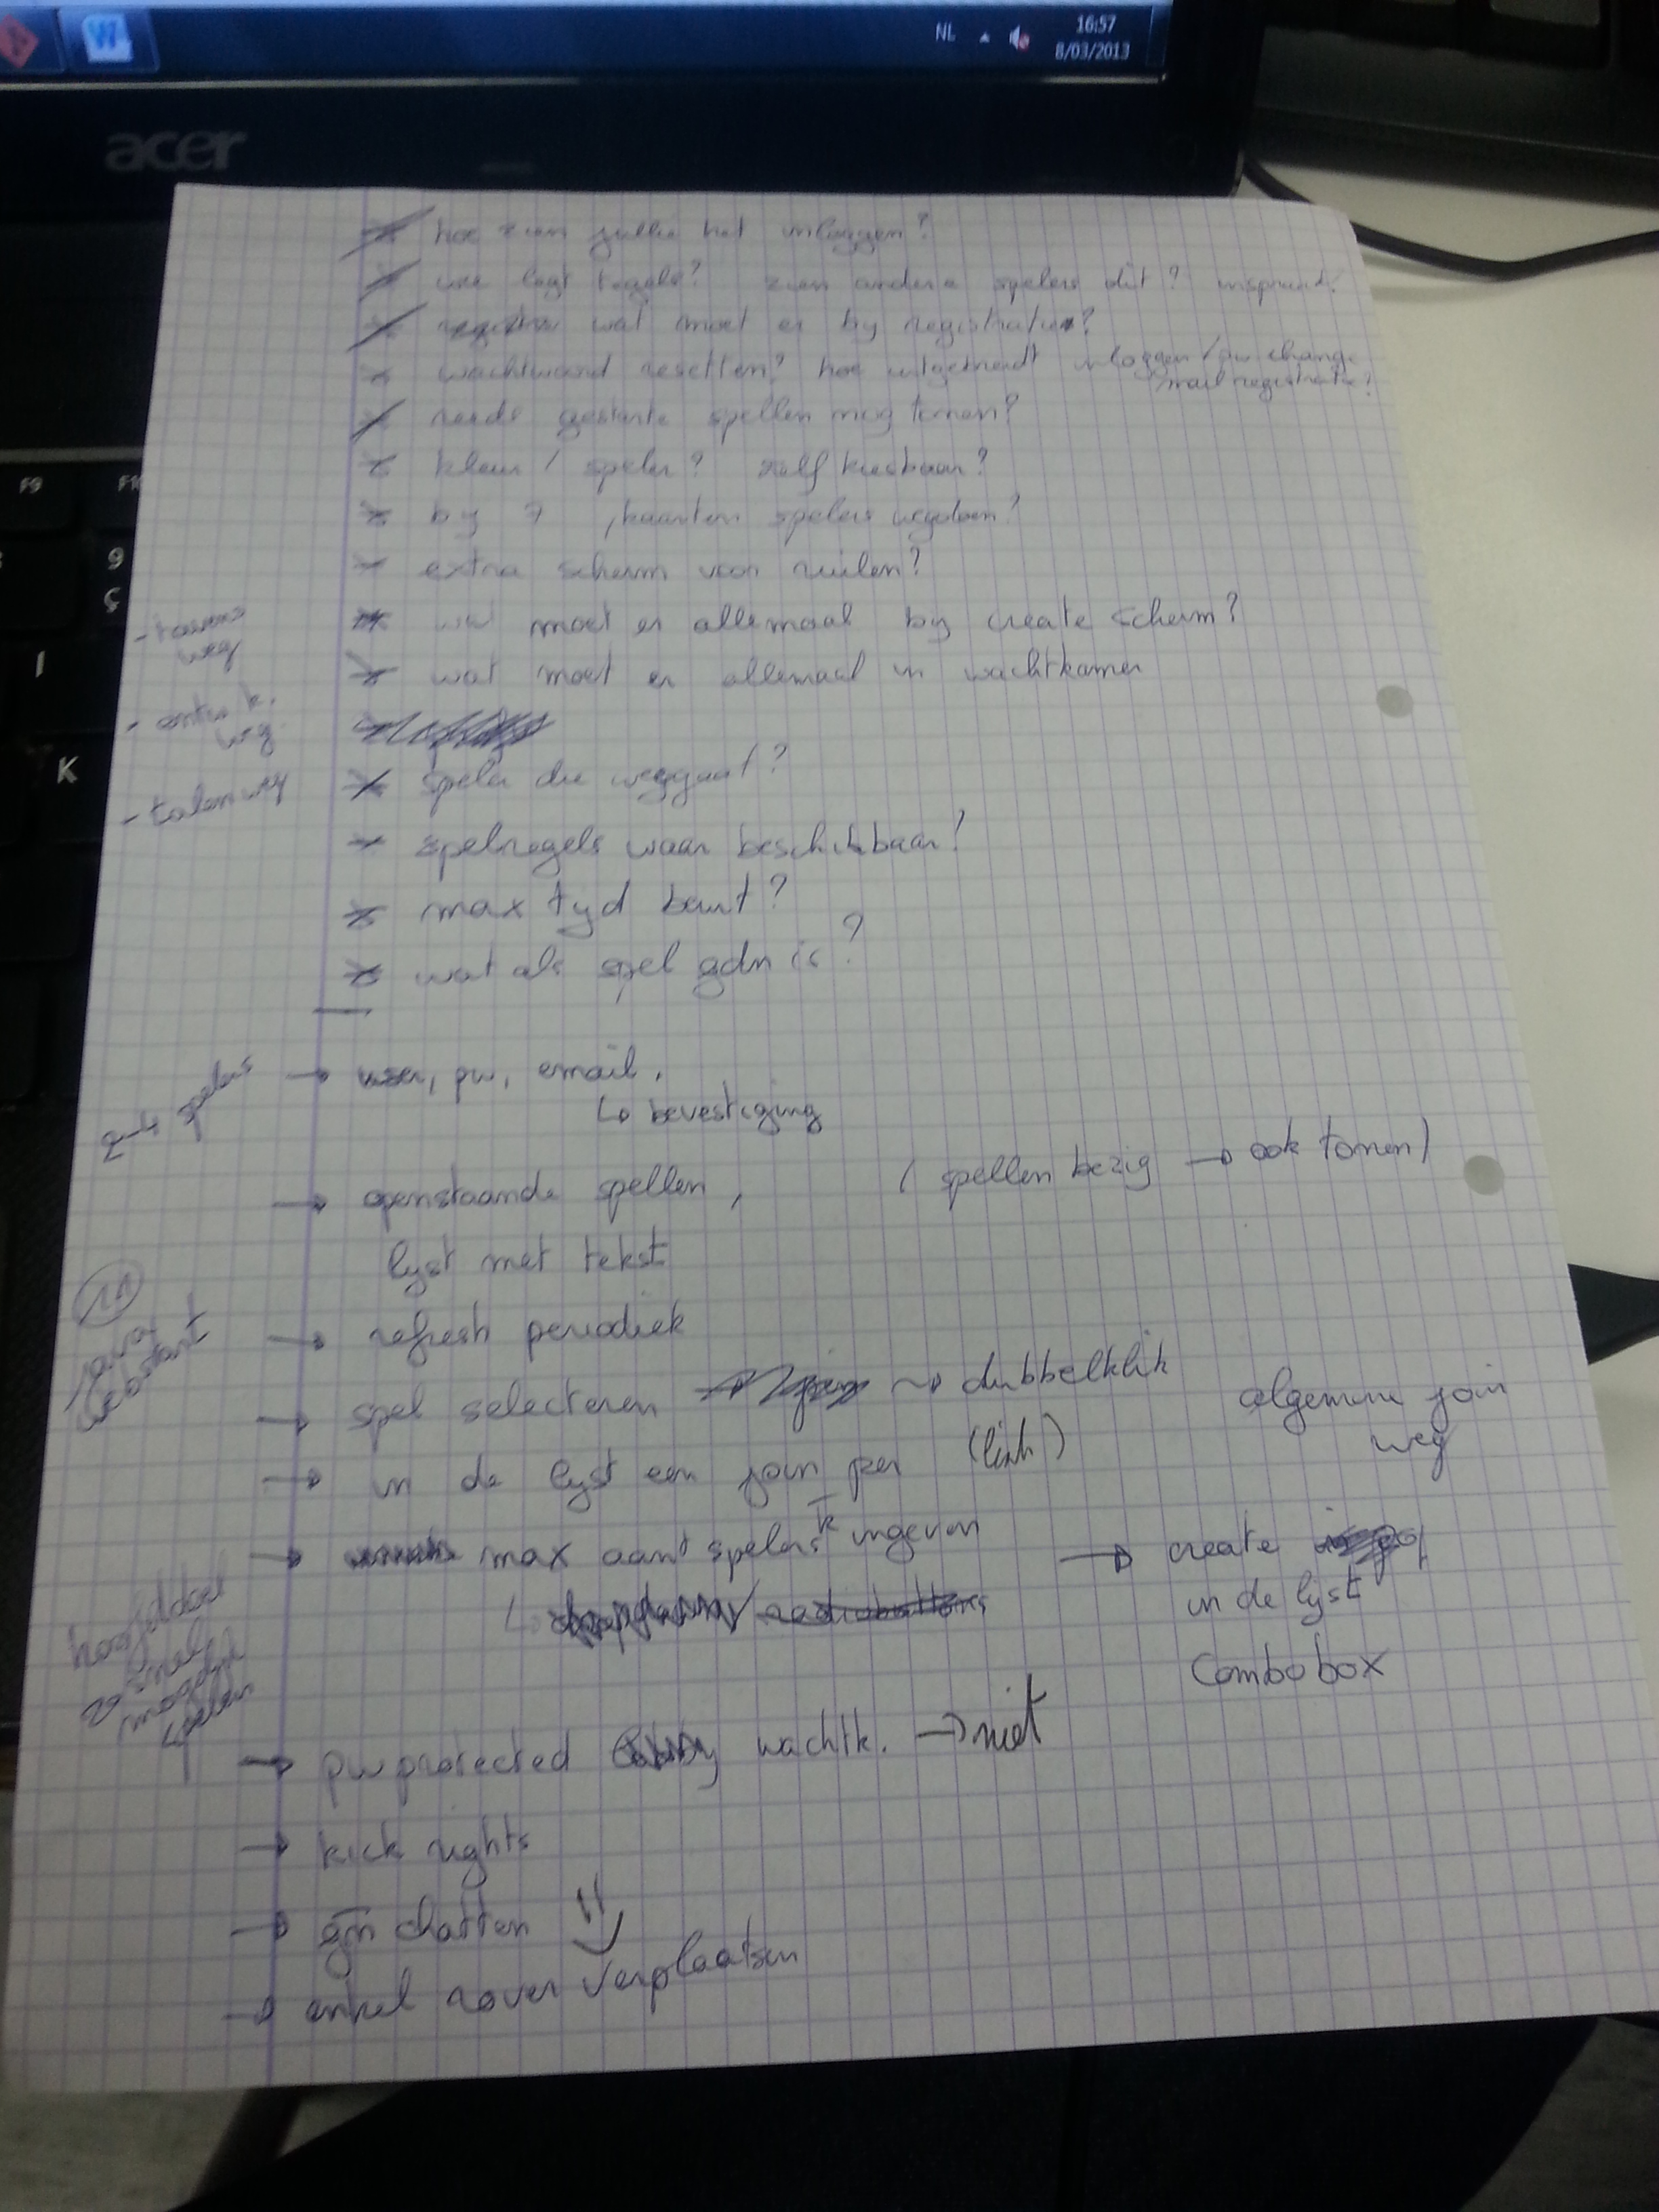 W
NL
16:57
8/03/2013
acer
F9
F10
9
ç
I
K
hoe zien jullie het inloggen?
wie legt tegels? zien andere spelers dit?
wat moet er bij registratie?
wachtwoord resetten? hoe uitgebreidt inloggen / pw change
/mail registratie?
reeds gestarte spellen nog tonen?
kleur / speler? zelf kiesbaar?
bij 7, kaarten spelers wegdoen?
extra scherm voor ruilen?
wat moet er allemaal bij create scherm?
- weg
wat moet er allemaal in wachtkamer
- k. weg
speler die weggaat?
- talen weg
spelregels waar beschikbaar?
max tijd beurt?
wat als spel gdn is?
2-4 spelers
→ user, pw, email,
↳ bevestiging
→ openstaande spellen, (spellen bezig → ook tonen)
lijst met tekst
→ refresh periodiek
java webstart
→ spel selecteren → dubbelklik
algemene join weg
→ in de lijst een join per (link)
→ max aant spelers k ingeven → create
in de lijst
Combobox
hoofddoel
zo snel
mogelijk
spelen
→ pw protected wachtk. → niet
→ kick rights
→ gn chatten
→ enkel rover verplaatsen